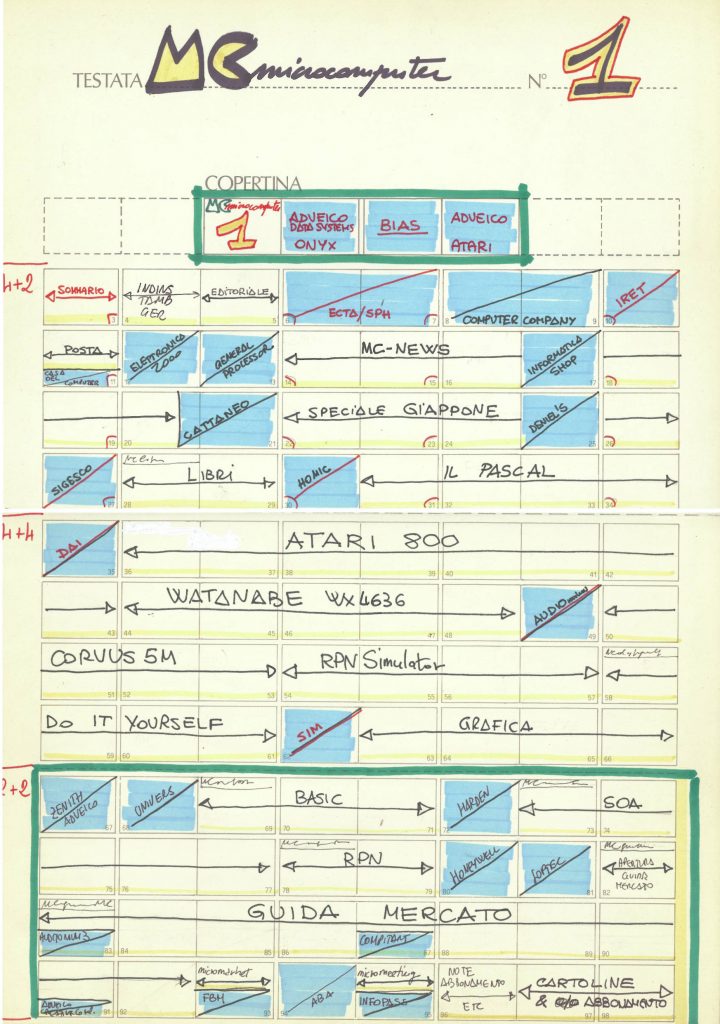 TESTATA MC microcomputer N° 1
COPERTINA
MC microcomputer
1
ADVEICO
DATA SYSTEMS
ONYX
BIAS
ADVEICO
ATARI
4+2
SOMMARIO
3
INDINS
TAMB
GER
4
EDITORIALE
5
6
ECTA/SPH
7
8
COMPUTER COMPANY
9
IRET
10
POSTA
CASA
DEL
COMPUTER
11
ELETTRONICA
2000
GENERAL
PROCESSOR
13
MC-NEWS
14
15
16
INFORMATICA
SHOP
17
18
19
20
CATTANEO
21
SPECIALE GIAPPONE
22
23
24
DENIEL'S
25
26
SIGESCO
27
LIBRI
28
29
HOMIC
30
IL PASCAL
31
32
33
34
4+4
DAI
35
ATARI 800
36
37
38
39
40
41
42
43
WATANABE WX4636
44
45
46
47
48
AUDIO
49
50
CORVUS 5M
51
52
53
RPN Simulator
54
55
56
57
58
DO IT YOURSELF
59
60
61
SIM
GRAFICA
63
64
65
66
2+2
ZENITH
ADVEICO
67
UNIVERS
68
BASIC
69
70
71
HARDEN
72
SOA
73
74
75
76
77
RPN
78
79
HONEYWELL
80
SOFTEC
81
APERTURA
GUIDA
MERCATO
82
GUIDA MERCATO
83
84
85
86
COMPITANT
87
88
89
90
91
92
micromarket
FBM
93
ABA
94
micromeeting
INFOPASE
95
NOTE
ABBONAMENTO
ETC
96
CARTOLINE
& c/c ABBONAMENTO
97
98